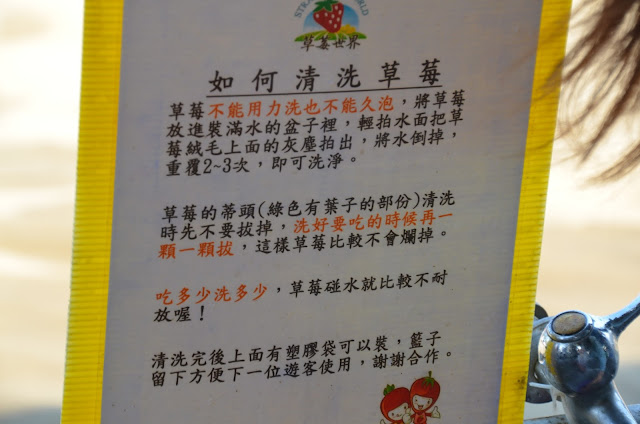 STRA RLD
草莓世界
如何清洗草莓
草莓不能用力洗也不能久泡，將草莓
放進裝滿水的盆子裡，輕拍水面把草
莓絨毛上面的灰塵拍出，將水倒掉，
重覆2~3次，即可洗淨。
草莓的蒂頭(綠色有葉子的部份)清洗
時先不要拔掉，洗好要吃的時候再一
顆一顆拔，這樣草莓比較不會爛掉。
吃多少洗多少，草莓碰水就比較不耐
放喔！
清洗完後上面有塑膠袋可以裝，籃子
留下方便下一位遊客使用，謝謝合作。